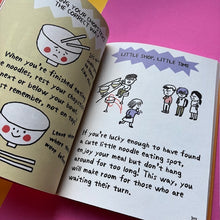 THE CORRECT
When you're finished eat
noodles, rest your chops
next or below your bow
st remember, not on to
LITTLE SHOP, LITTLE TIME
If you're lucky enough to have found
a cute little noodle eating spot,
enjoy your meal but don't hang
around for too long! This way, you
will make room for those who are
waiting their turn.